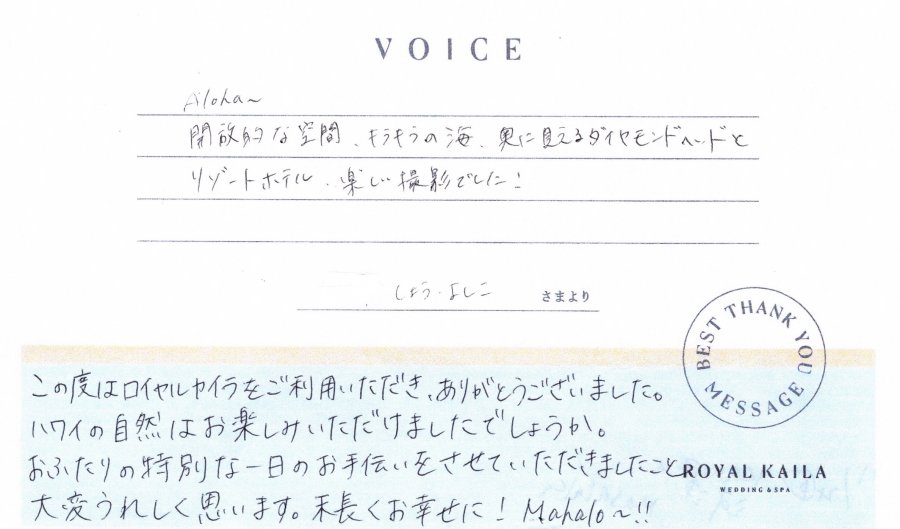 VOICE
Aloha~
開放的な空間、キラキラの海、奥に見えるダイヤモンドヘッドと
リゾートホテル、楽しい撮影でした!
しょう・よしこ さまより
BEST THANK YOU MESSAGE
この度はロイヤルカイラをご利用いただき、ありがとうございました。
ハワイの自然はお楽しみいただけましたでしょうか。
おふたりの特別な一日のお手伝いをさせていただきましたこと
ROYAL KAILA
WEDDING & SPA
大変うれしく思います。末長くお幸せに! Mahalo~!!